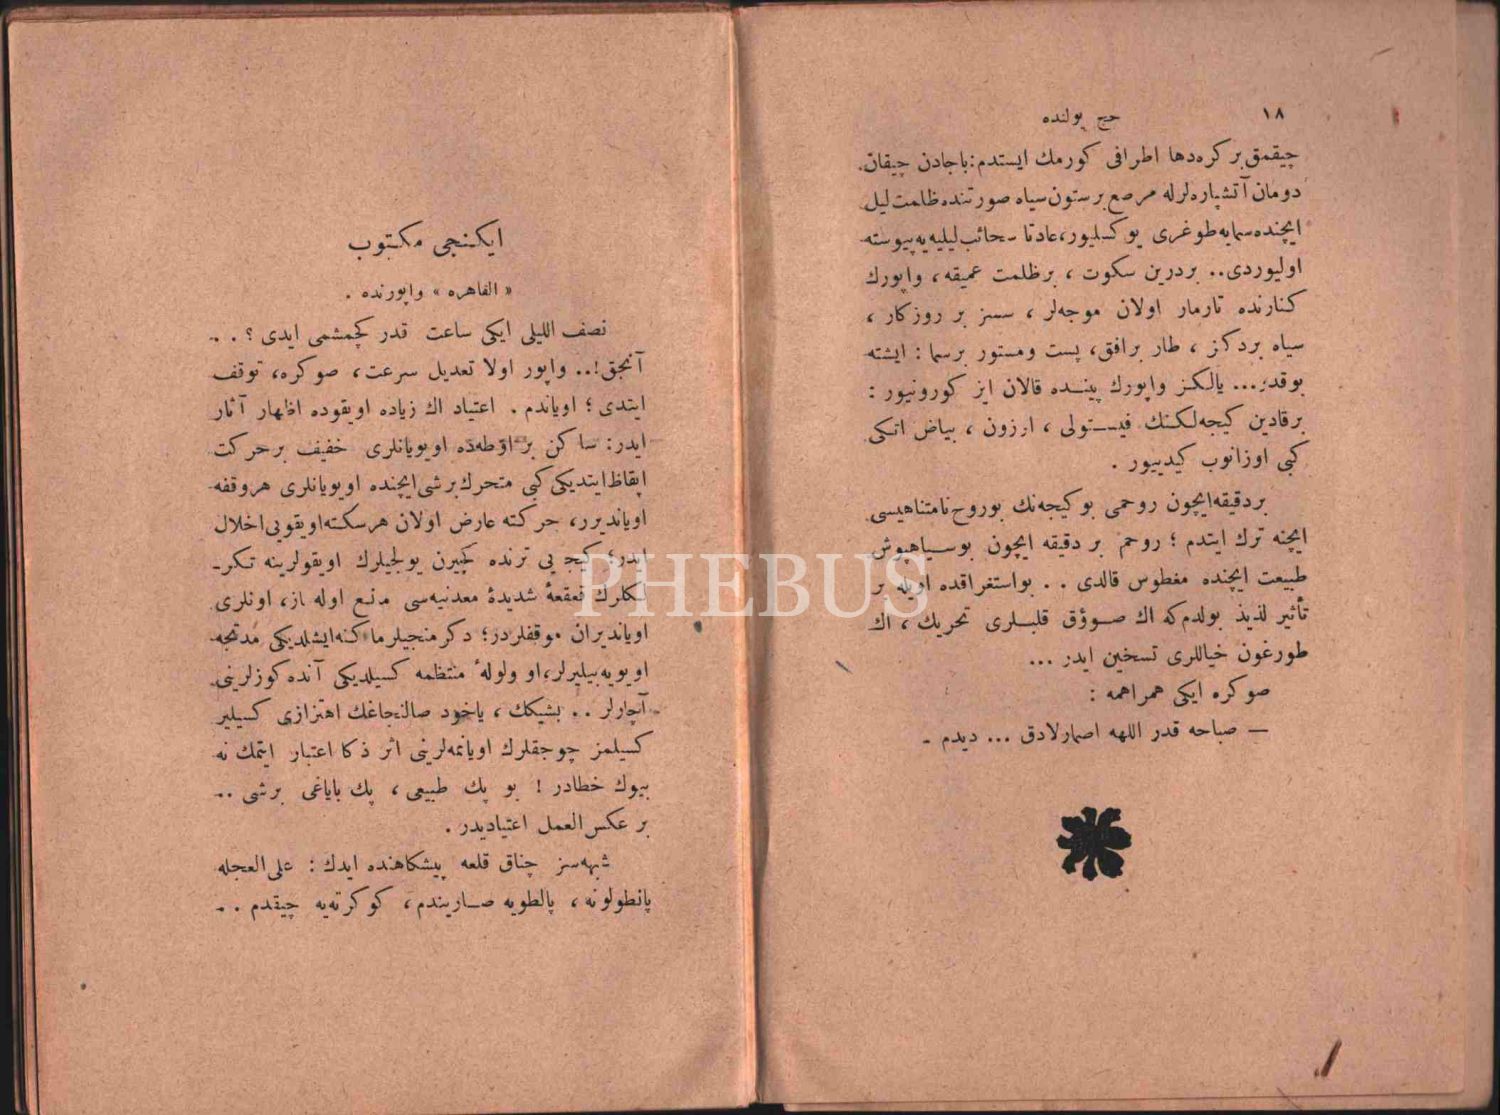 ١٨
حج يولنده
چيقمق بر كره دها اطرافى كورمك ايستدم: باجادن چيقان
دومان آتشپاره‌لرله مرصع بر ستون سياه صورتنده ظلمت ليل
ايچنده سمايه طوغرى يوكسليور، عادتا سحائب ليليه‌يه پيوسته
اوليوردى.. بر درين سكوت ، بر ظلمت عميقه ، واپورك
كنارنده تارمار اولان موجه‌لر ، سسز بر روزكار ،
سياه بر دكز ، طار بر افق، پست ومستور بر سما : ايشته
بوقدر... يالكز واپورك پيــنده قالان ايز كورونيور :
بر قادين كيجه‌لكنك فيستولى ، اوزون ، بياض اتكى
كبى اوزانوب كيدييور .
بر دقيقه ايچون روحمى بو كيجه‌نك بو روح نامتناهيسى
ايچنه ترك ايتدم ؛ روحم بر دقيقه ايچون بو سياهپوش
طبيعت ايچنده مغطوس قالدى . . بو استغراقده اويله بر
تأثير لذيذ بولدم كه اك صوؤق قلبلرى تحريك ، اك
طورغون خياللرى تسخين ايدر ...
صوكره ايكى همراهمه :
— صباحه قدر اللهه اصمارلادق ... ديدم .
ايكنجى مكتوب
« القاهره » واپورنده .
نصف الليلى ايكى ساعت قدر كچمشمى ايدى ؟ . .
آنجق!.. واپور اولا تعديل سرعت، صوكره، توقف
ايتدى ؛ اوياندم . اعتياد اك زياده اويقوده اظهار آثار
ايدر: ساكن بر اوطه‌ده اويويانلرى خفيف بر حركت
ايقاظ ايتديكى كبى متحرك بر شى ايچنده اويويانلرى هر وقفه
اوياندير، حركته عارض اولان هر سكته اويقويى اخلال
ايدر؛ كيجه‌يى ترنده كچيرن يولجيلرك اويقولرينه تكر-
لكلرك قعقعهٔ شديدهٔ معدنيه‌سى مانع اوله‌ماز، اونلرى
اويانديران موقفلردر؛ دكرمنجيلر ماكنه ايشلديكى مدتجه
اويويه‌بيليرلر، او ولولهٔ منتظمه كسيلديكى آنده كوزلرينى
آچارلر . . بشيكك ، ياخود صالنجاغك اهتزازى كسيلير
كسيلمز چوجقلرك اويانمه‌لرينى اثر ذكا اعتبار ايتمك نه
بيوك خطادر ! بو پك طبيعى ، پك باياغى بر شى ..
بر عكس العمل اعتياديدر .
شبهه‌سز چناق قلعه پيشكاهنده ايدك : على العجله
پانطولونه ، پالطويه صارينـدم، كوكرته‌يه چيقدم . .
PHEBUS